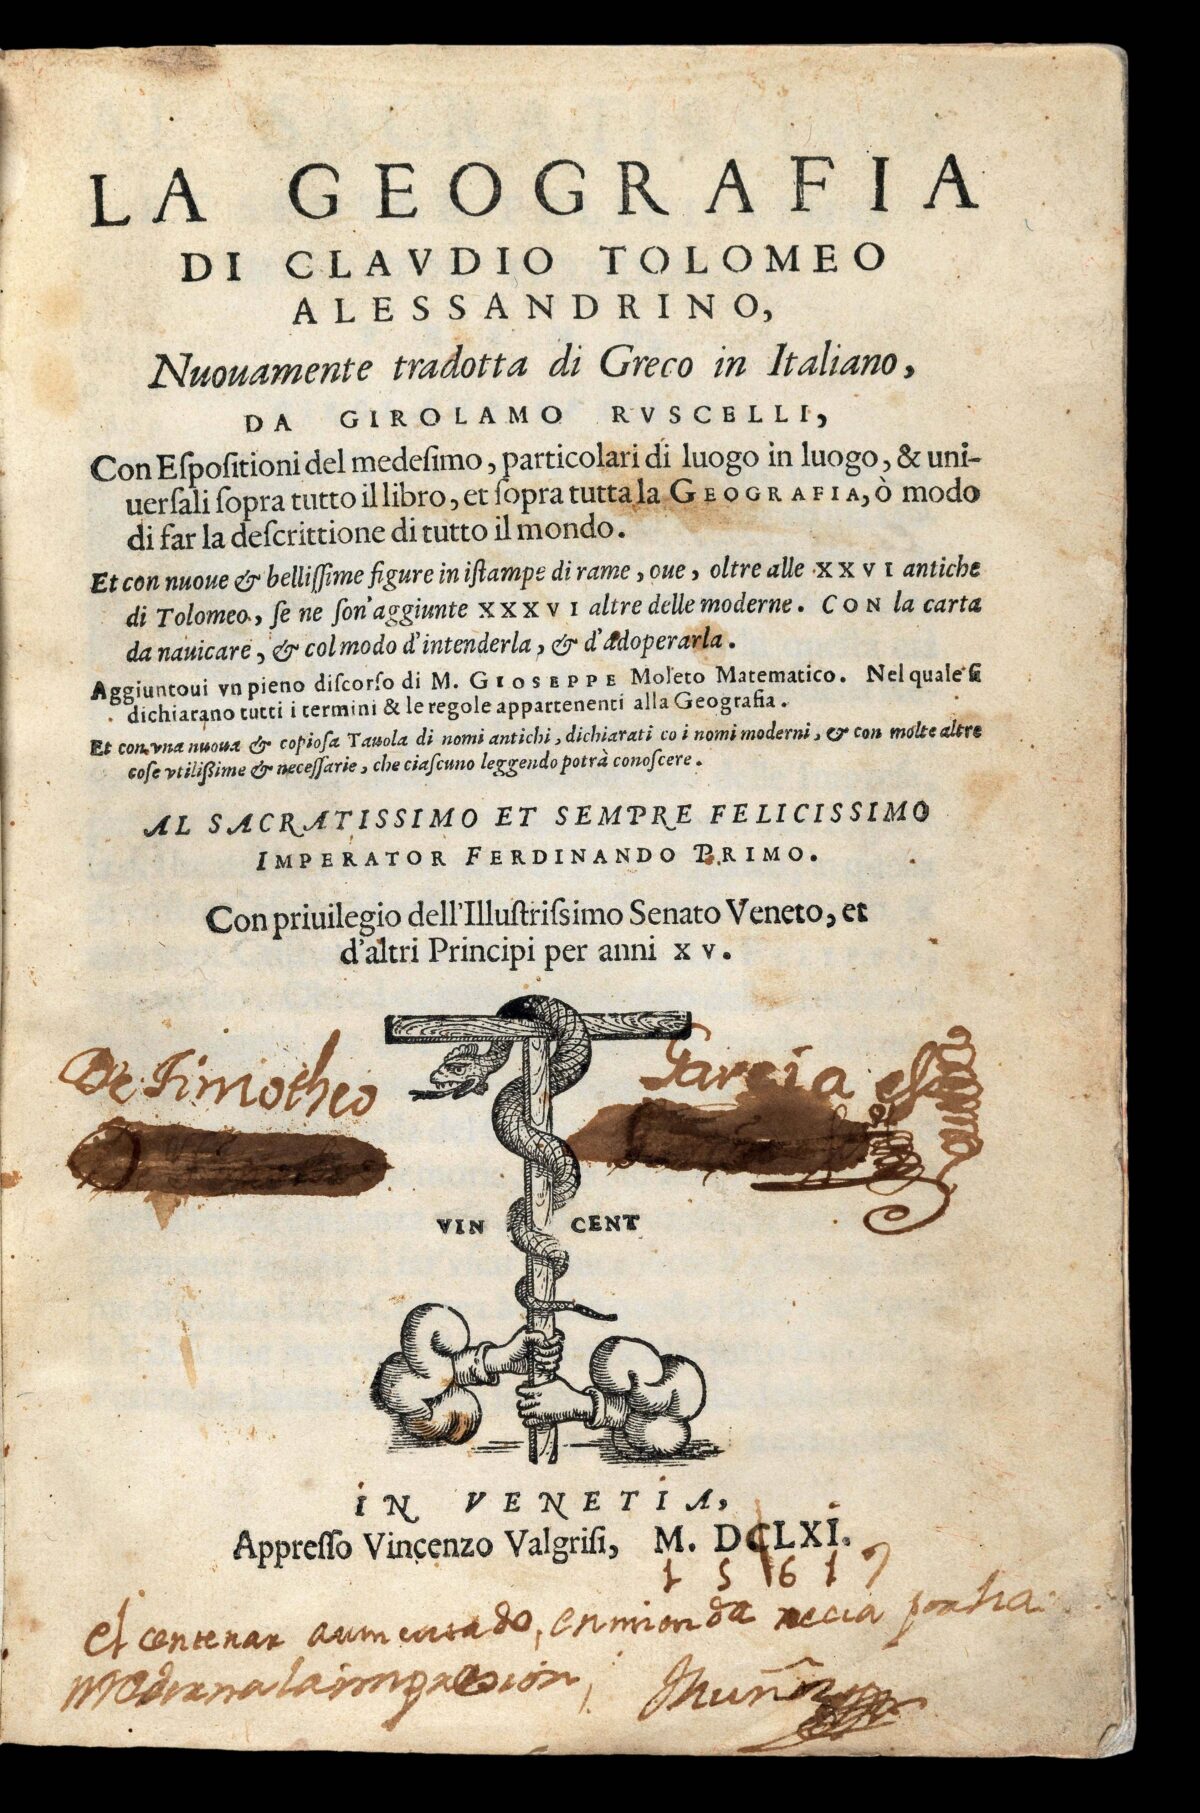 LA GEOGRAFIA
DI CLAVDIO TOLOMEO
ALESSANDRINO,
Nuouamente tradotta di Greco in Italiano,
DA GIROLAMO RVSCELLI,
Con Eſpoſitioni del medeſimo, particolari di luogo in luogo, & uni-
uerſali ſopra tutto il libro, et ſopra tutta la GEOGRAFIA, ò modo
di far la deſcrittione di tutto il mondo.
Et con nuoue & belliſſime figure in iſtampe di rame, oue, oltre alle XXVI antiche
di Tolomeo, ſe ne ſon'aggiunte XXXVI altre delle moderne. CON la carta
da nauicare, & col modo d'intenderla, & d'adoperarla.
Aggiuntoui vn pieno diſcorſo di M. GIOSEPPE Moleto Matematico. Nel quale ſi
dichiarano tutti i termini & le regole appartenenti alla Geografia.
Et con vna nuoua & copioſa Tauola di nomi antichi, dichiarati co i nomi moderni, & con molte altre
coſe vtilißime & neceſſarie, che ciaſcuno leggendo potrà conoſcere.
AL SACRATISSIMO ET SEMPRE FELICISSIMO
IMPERATOR FERDINANDO PRIMO.
Con priuilegio dell'Illuſtriſsimo Senato Veneto, et
d'altri Principi per anni XV.
De Timotheo Garcia
VIN CENT
IN VENETIA,
Appreſſo Vincenzo Valgriſi, M. DCLXI.
1 5 6 1
el centenar aumentado, enmienda necia por ha
moderna la impresion,